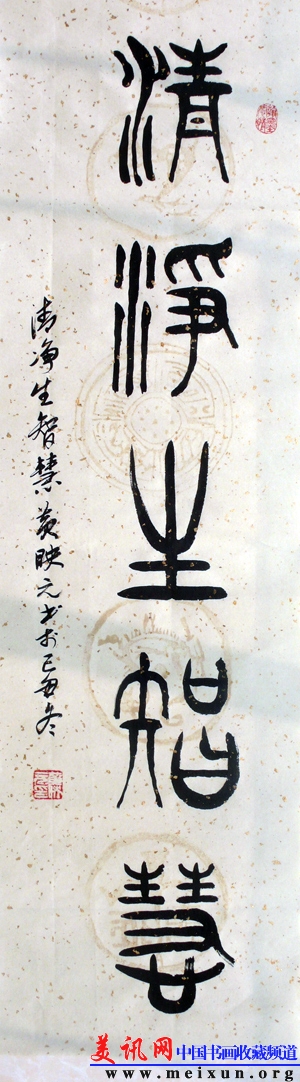 清淨生智慧
清净生智慧黄映元书於己丑冬
美讯网 中国书画收藏频道
www.meixun.org